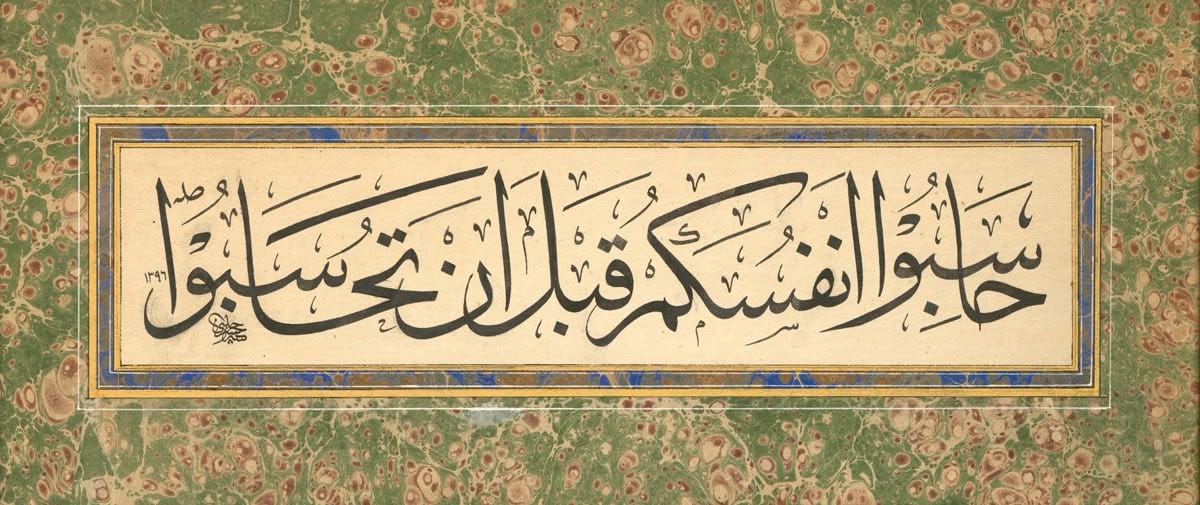 حَاسِبُوْا اَنْفُسَكُمْ قَبْلَ اَنْ تُحَاسَبُوْا
١٣٩٦